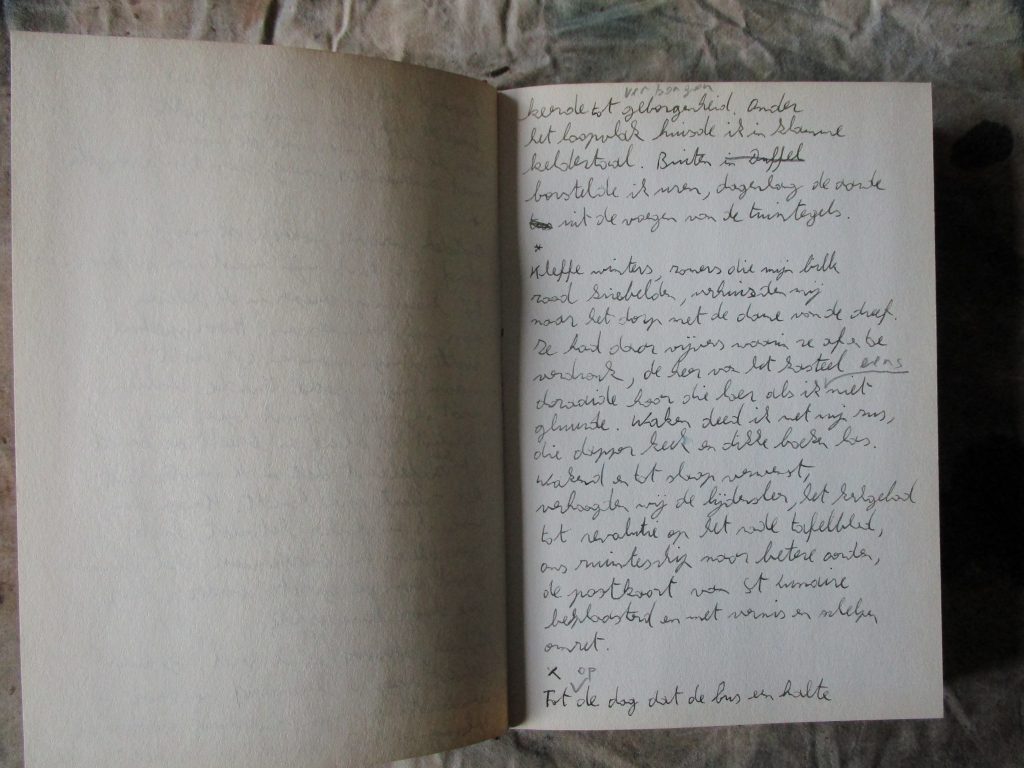 verborgen
keerde tot geborgenheid. Onder
het loopvlak huisde ik in klamme
keldertaal. Buiten in Duffel
borstelde ik uren, dagenlang de aarde
uit de voegen van de tuintegels.
*
Kleffe winters, zomers die mijn
rood kriebelden, verhuisden mij
naar het dorp met de dame van de dreef.
Ze had daar vijvers waarin ze af en toe
verdronk, de heer van het kasteel eens
haar die loer als ik niet
gluurde. Waken deed ik met mijn zus,
die dapper keek en dikke boeken las.
Wakend en tot slaap verweest,
verhoogden wij de lijdensleer, het
tot revolutie op het rode tafelblad,
ons ruimteschip naar betere oorden,
de postkaart van St Lunaire
beplaasterd en met vernis en schelpen
omzet.
x op
Tot de dag dat de bus een halte